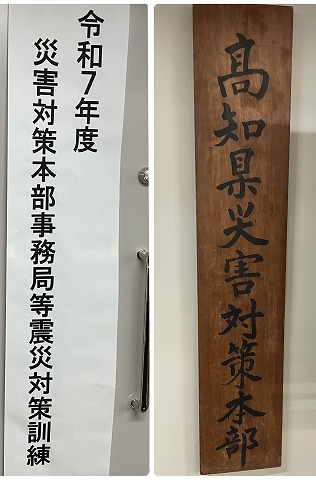 令和7年度
災害対策本部事務局等震災対策訓練
高知県災害対策本部